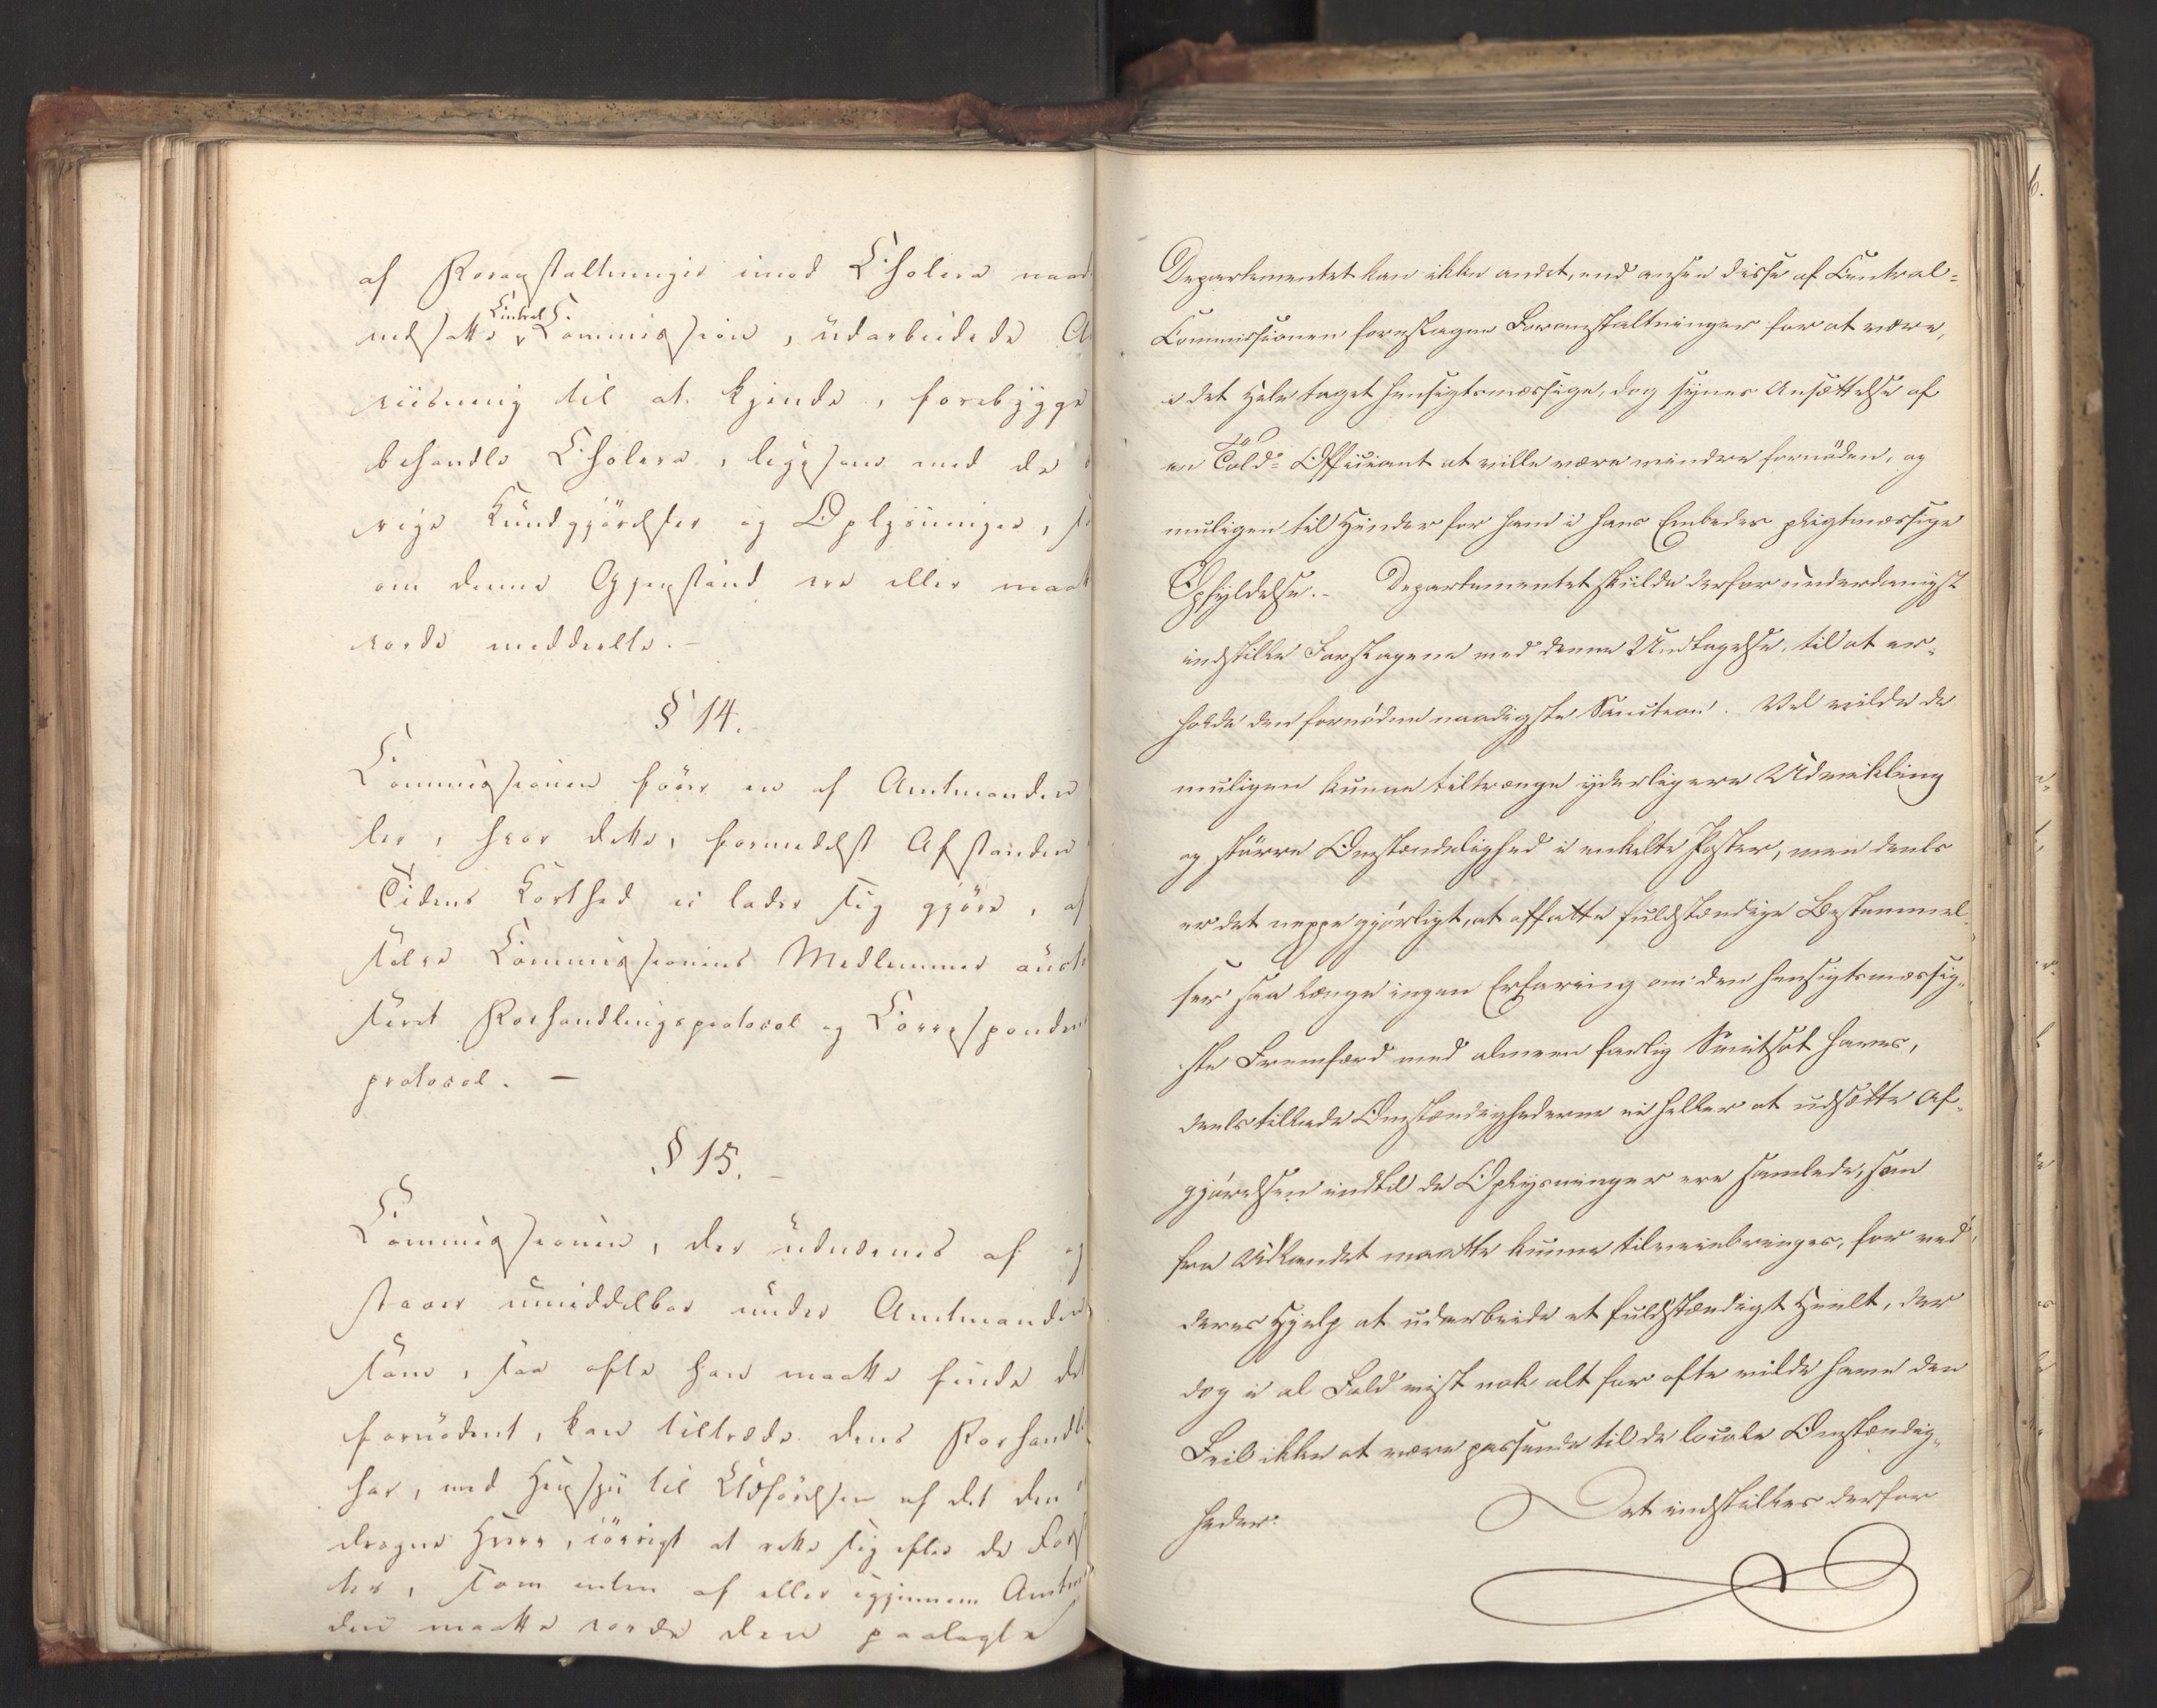 af Foranstaltninger imod Cholera
nedsatte Central C. Commission, udarbeidede
viisning til at kjende, forebygge
behandle Cholera, ligesom med de
rige Kundgjørelser og Oplysninger,
om denne Gjenstand ere eller
vorde meddeelte.-
§ 14.
Commissionen fører en af Amtmanden
ler, hvor dette, formedelst Afstanden
Tidens Korthed ei lader sig gjøre, af
selve Commissionens Medlemmer
seret Forhandlingsprotocol og
protocol. -
§ 15.
Commissionen, der udnævnes af og
staaer umiddelbar under Amtmanden
som, saa ofte han maatte finde det
fornødent, kan tiltræde dens
har, med Hensyn til Udførelsen af det den
dragne Hverv, iøvrigt at rette sig efter de
ter, som enten af eller igjennem
den maatte vorde den paalagte
Departementet kan ikke andet, end ansee disse af Central-
Commissionen foreslagne Foranstaltninger for at være,
i det Hele taget hensigtsmæssige, dog synes Ansættelse af
en Told-Officiant at ville være mindre fornøden, og
muligen til Hinder for ham i hans Embedes pligtmæssige
Opfyldelse.- Departementet skulde derfor underdanigst
indstille Forslagene med denne Undtagelse, til at er-
holde den fornødne naadigste Sanction. Vel vilde de
muligen kunne tiltrænge yderligere Udvikling
og større Omstændelighed i enkelte Poster, men deels
er det neppe gjørligt, at affatte fuldstændige Bestemmel-
ser saa længe ingen Erfaring om den hensigtsmæssig-
ste Fremfærd med almeen farlig Smitsot haves,
deels tillade Omstændighederne ei heller at udsætte Af-
gjørelsen indtil de Oplysninger ere samlede, som
fra Udlandet maatte kunne tilveiebringes, for ved
deres Hjelp at udarbeide et fuldstændigt Heelt, der
dog i al Fald vist nok alt for ofte vilde have den
Feil ikke at være passende til de locale Omstændig-
heder. Det indstilles derfor